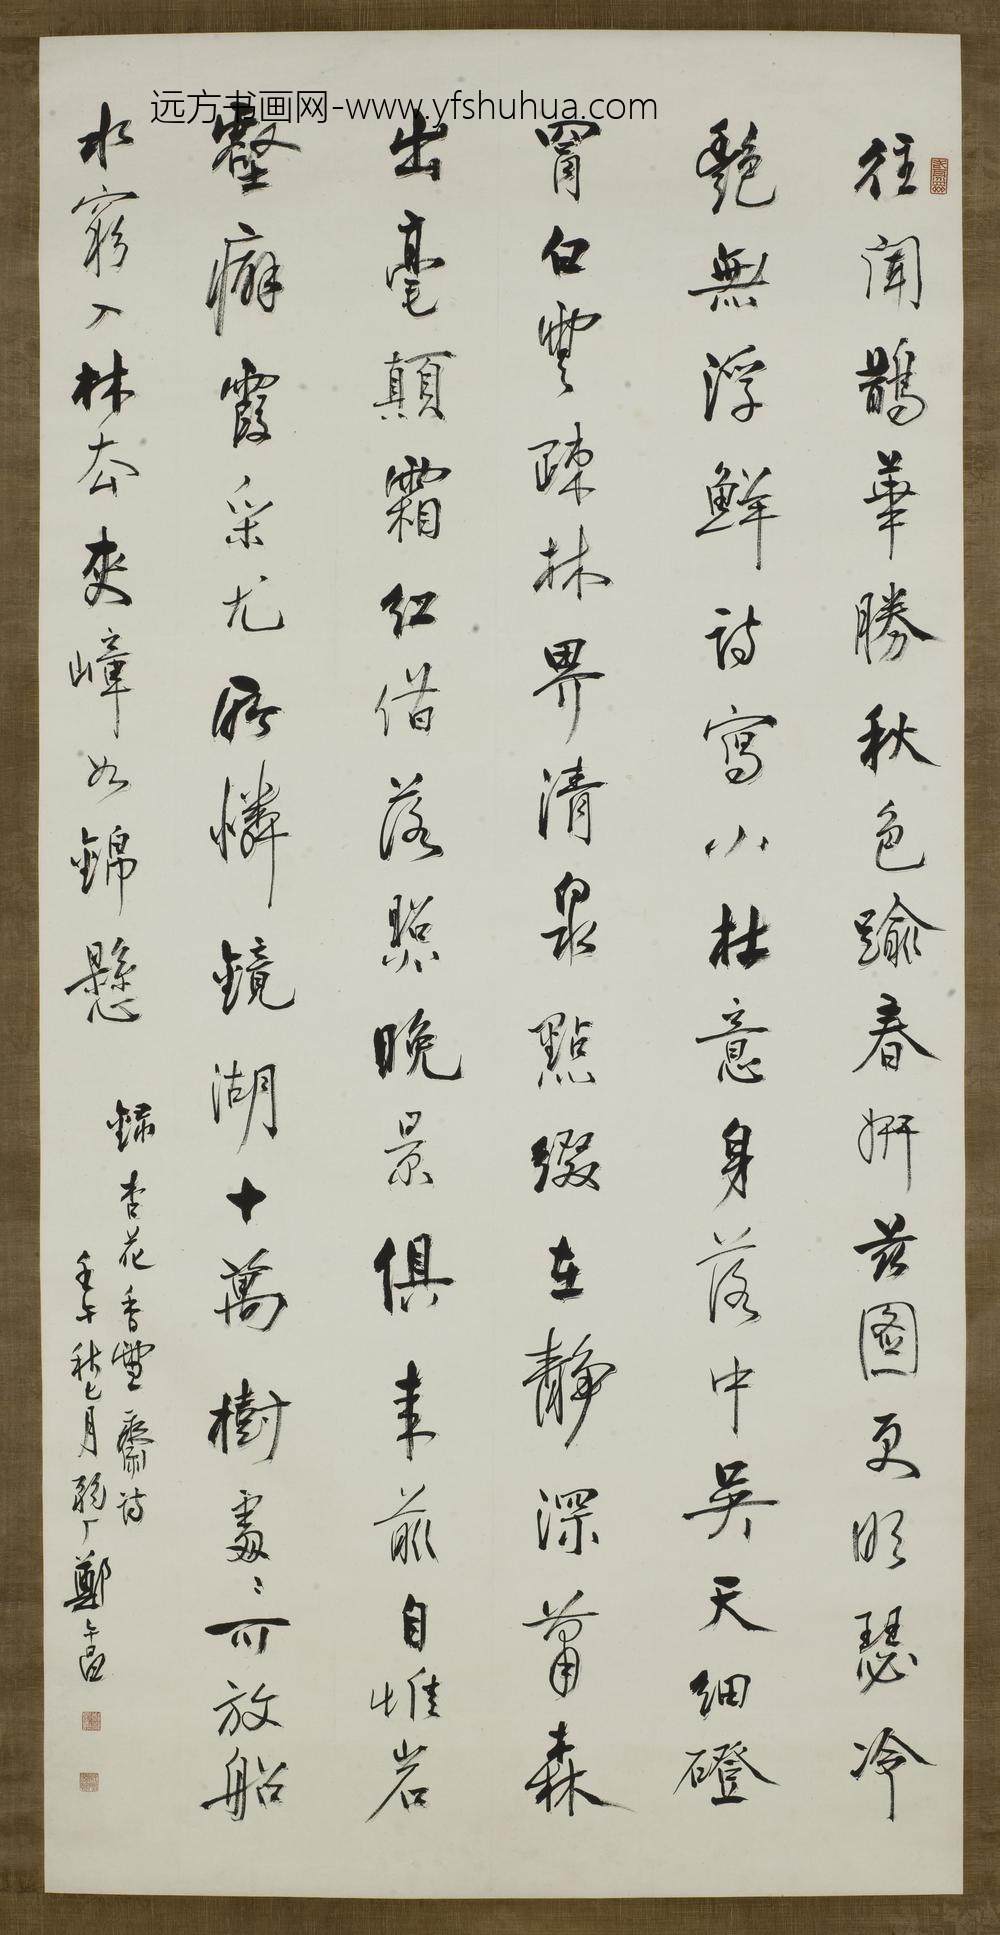 远方书画网-www.yfshuhua.com
往聞鵲華勝秋色踰春妍茲圖更明瑟冷
艷無浮鮮詩寫小杜意身落中吳天細磴
罥白雲疎林界清泉點綴在靜深蕭森
出毫顛霜紅借落照晚景俱來前自惟岩
壑癖霞采尤所憐鏡湖十萬樹處〻可放船
水窮入林去夾嶂如錦懸
錄杏花香雪齋詩
壬午秋七月 厂鄭午昌